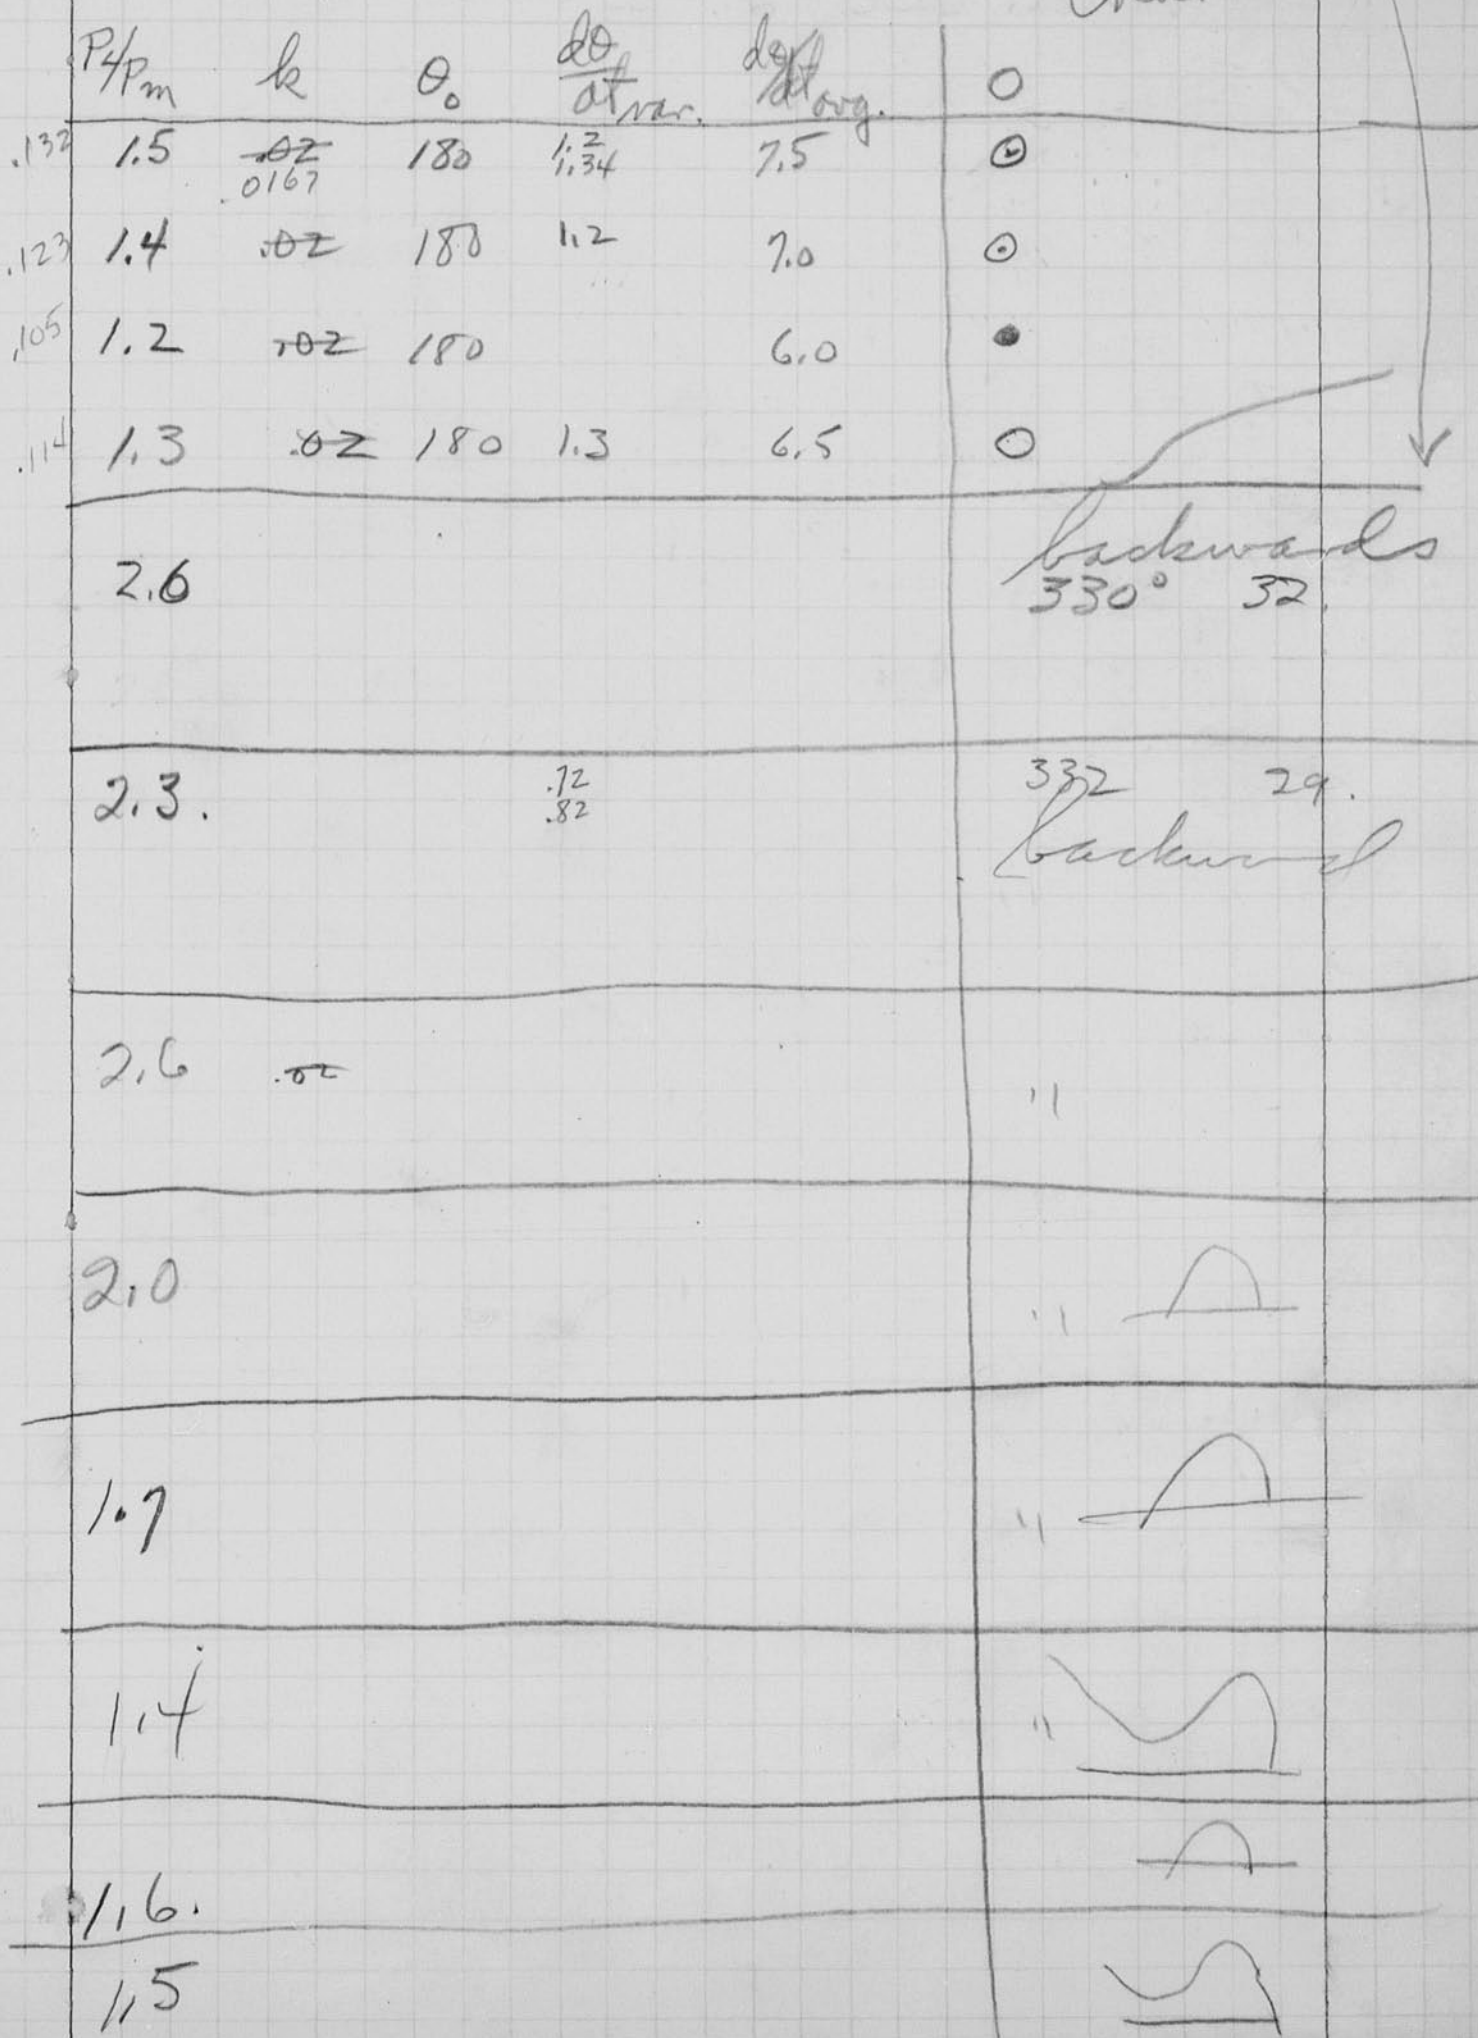 P4/Pm k θ₀ dθ/dt var. dθ/dt avg. O
.132 1.5 .02 180 1.2 7.5
.0167 1.34
.123 1.4 .02 180 1.2 7.0
.105 1.2 .02 180 6.0
.114 1.3 .02 180 1.3 6.5
backwards
2.6 330° 32.
2.3. .72 332 29.
.82
backward
2.6 .02 "
2.0 "
1.7 "
1.4 "
1.6.
1.5